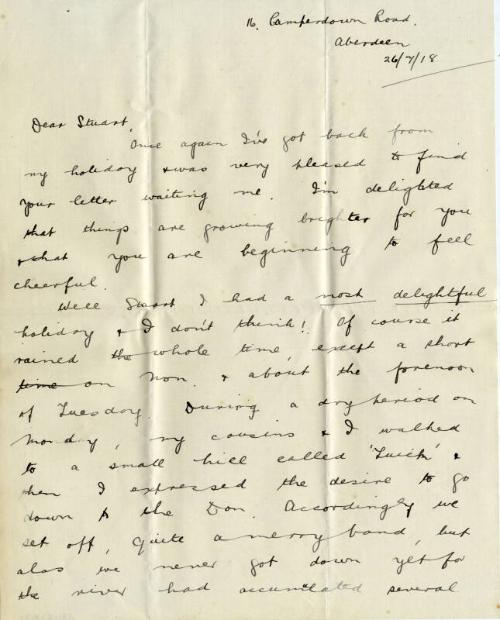 16, Camperdown Road.
Aberdeen
26/7/18
Dear Stuart,
Once again I've got back from
my holiday & was very pleased to find
your letter waiting me. I'm delighted
that things are growing brighter for you
& that you are beginning to feel
cheerful.
Well Stuart I had a most delightful
holiday & I don't think! Of course it
rained the whole time, except a short
time on Mon. & about the forenoon
of Tuesday. During a dry period on
Monday, my cousins & I walked
to a small hill called 'Luich' &
then I expressed the desire to go
down to the Don. Accordingly we
set off, quite a merry band, but
alas we never got down yet for
the river had accumulated several